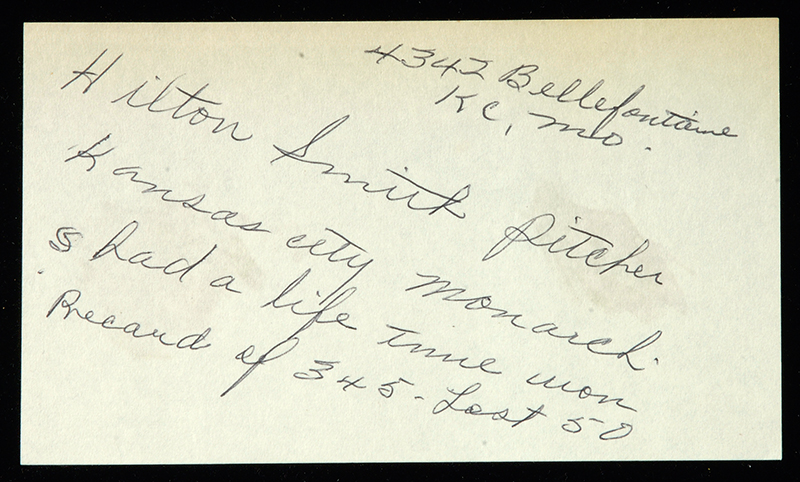 4342 Bellefontaine
KC, Mo.
Hilton Smith pitcher
Kansas city monarch
s had a life time won
Recard of 345 - Lost 50